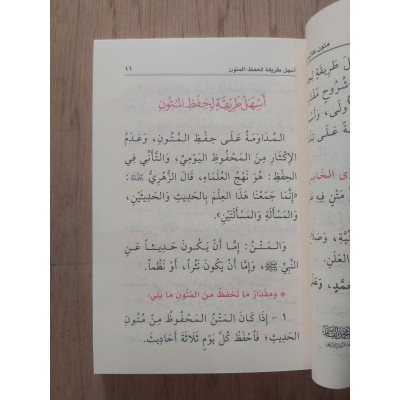 أسهل طريقة لحفظ المتون
١١
أَسْهَلُ طَرِيقَةٍ لِحِفْظِ المُتُونِ
المُدَاوَمَةُ عَلَى حِفْظِ المُتُونِ، وَعَدَمُ
الإِكْثَارِ مِنَ المَحْفُوظِ اليَوْمِيِّ، وَالتَّأَنِّي فِي
الحِفْظِ: هُوَ نَهْجُ العُلَمَاءِ، قَالَ الزُّهْرِيُّ
«إِنَّمَا جَمَعْنَا هَذَا العِلْمَ بِالحَدِيثِ وَالحَدِيثَيْنِ،
وَالمَسْأَلَةِ وَالمَسْأَلَتَيْنِ».
وَالمَتْنُ: إِمَّا أَنْ يَكُونَ حَدِيثاً عَنِ
النَّبِيِّ ﷺ، وَإِمَّا أَنْ يَكُونَ نَثْراً، أَوْ نَظْماً.
* وَمِقْدَارُ مَا تَحْفَظُ مِنَ المُتُونِ مَا يَلِي:
١ - إِذَا كَانَ المَتْنُ المَحْفُوظُ مِنْ مُتُونِ
الحَدِيثِ؛ فَاحْفَظْ كُلَّ يَوْمٍ ثَلَاثَةَ أَحَادِيثَ.